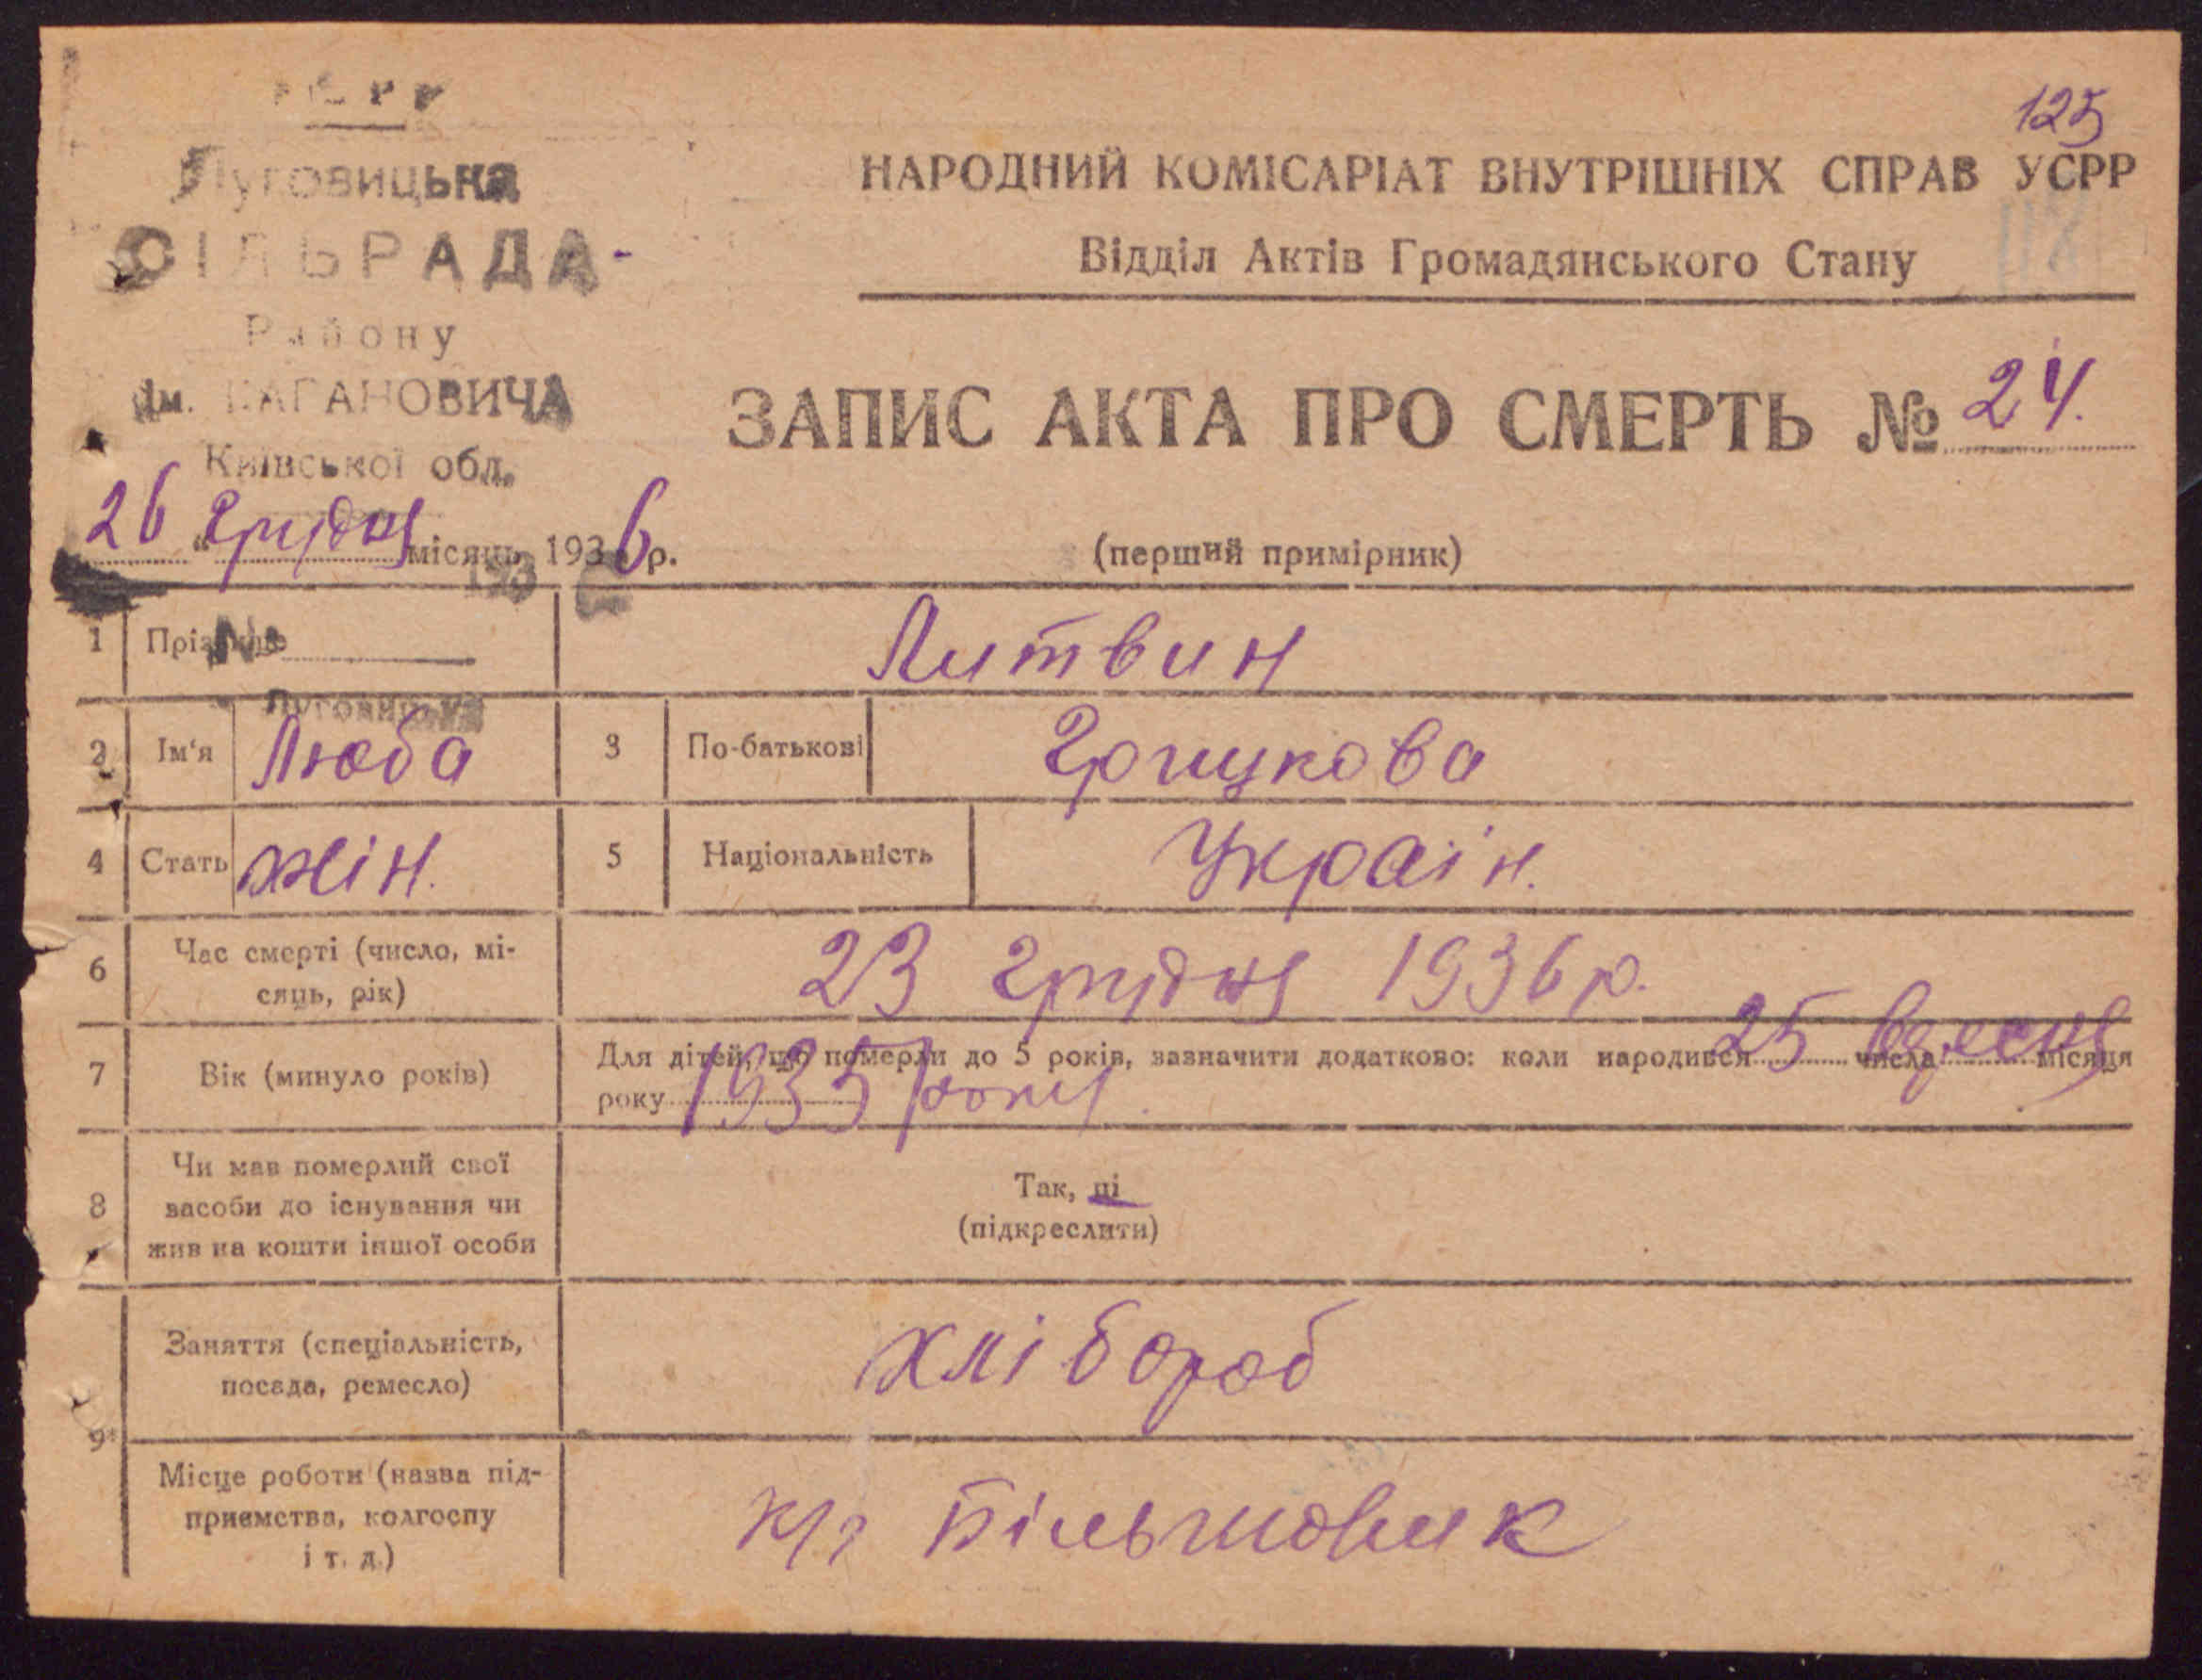 125
Луговицька
СІЛЬРАДА
Району
ім. КАГАНОВИЧА
Київської обл.
НАРОДНИЙ КОМІСАРІАТ ВНУТРІШНІХ СПРАВ УСРР
118
Відділ Актів Громадянського Стану
ЗАПИС АКТА ПРО СМЕРТЬ № 24.
26 " грудня місяць 1936 р.
193
(перший примірник)
1 Прізвище Литвин
№
Луговицька
2 Ім'я Люба 3 По-батькові Грицкова
4 Стать жін. 5 Національність Україн.
6 Час смерті (число, мі-
сяць, рік) 23 грудня 1936 р.
7 Вік (минуло років) Для дітей, що померли до 5 років, зазначити додатково: коли народився 25 числа вересня місяця
року 1935 року.
8 Чи мав померлий свої
засоби до існування чи
жив на кошти іншої особи
Так, ні
(підкреслити)
9 Заняття (спеціальність,
посада, ремесло) хлібороб
Місце роботи (назва під-
приємства, колгоспу
і т. д.) к/г Більшовик